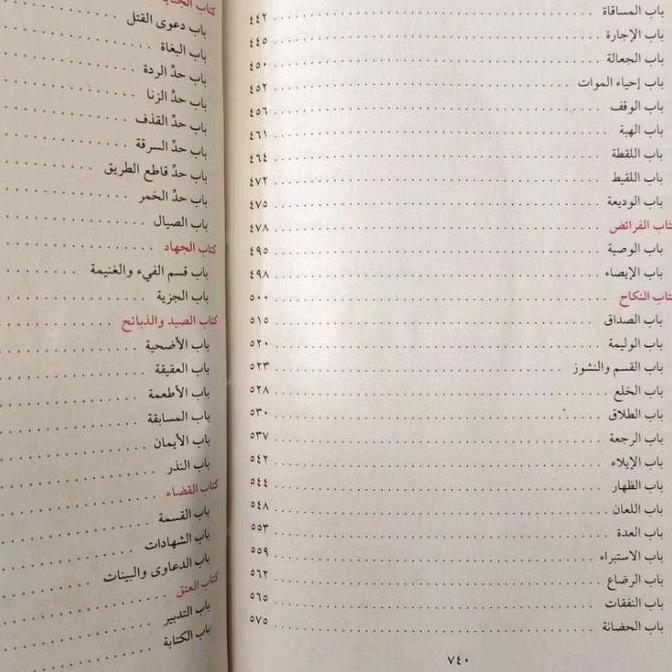 باب المساقاة ٤٤٢
باب الإجارة ٤٤٥
باب الجعالة ٤٥٠
باب إحياء الموات ٤٥٢
باب الوقف ٤٥٦
باب الهبة ٤٦١
باب اللقطة ٤٦٤
باب اللقيط ٤٧٢
باب الوديعة ٤٧٥
كتاب الفرائض ٤٧٨
باب الوصية ٤٩٥
باب الإيصاء ٤٩٨
كتاب النكاح ٥٠٠
باب الصداق ٥١٥
باب الوليمة ٥٢٠
باب القسم والنشوز ٥٢٣
باب الخلع ٥٢٨
باب الطلاق ٥٣٠
باب الرجعة ٥٣٧
باب الإيلاء ٥٤٢
باب الظهار ٥٤٤
باب اللعان ٥٤٨
باب العدة ٥٥٣
باب الاستبراء ٥٥٩
باب الرضاع ٥٦٢
باب النفقات ٥٦٥
باب الحضانة ٥٧٥
٧٤٠
كتاب
باب دعوى القتل
باب البغاة
باب حدِّ الردة
باب حدِّ الزنا
باب حدِّ القذف
باب حدِّ السرقة
باب حدِّ قاطع الطريق
باب حدِّ الخمر
باب الصيال
كتاب الجهاد
باب قسم الفيء والغنيمة
باب الجزية
كتاب الصيد والذبائح
باب الأضحية
باب العقيقة
باب الأطعمة
باب المسابقة
باب الأيمان
باب النذر
كتاب القضاء
باب القسمة
باب الشهادات
باب الدعاوى والبينات
كتاب العتق
باب التدبير
باب الكتابة